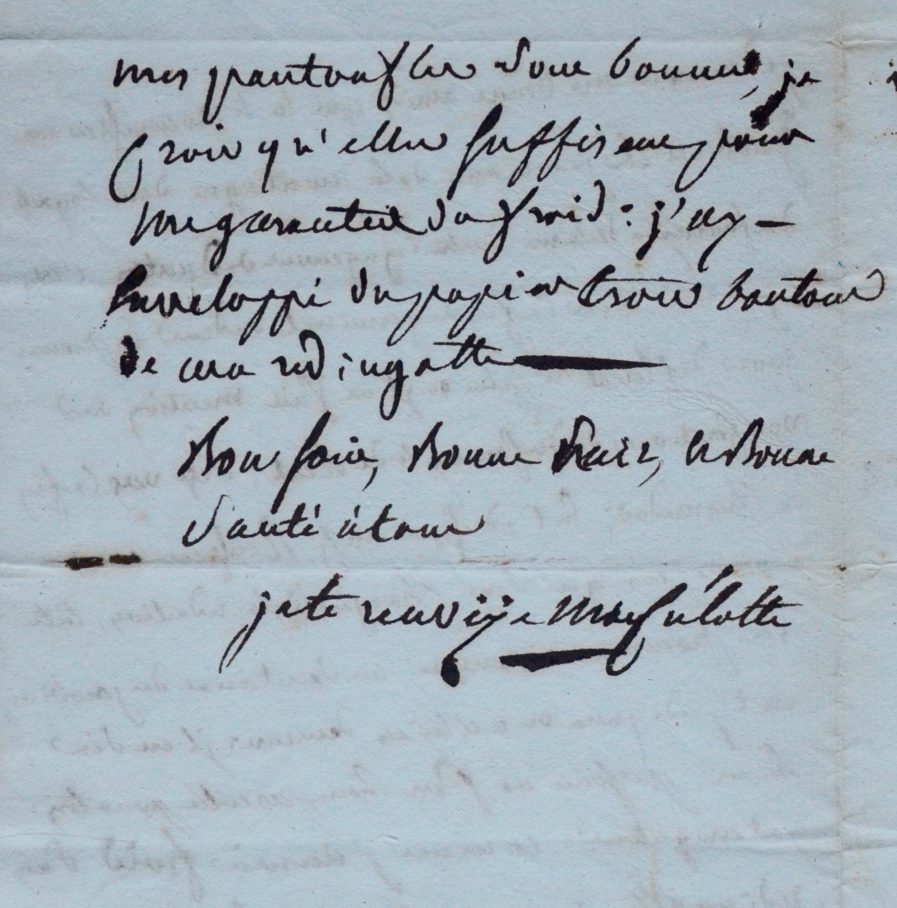 mes pantoufles sont bonnes, je
crois qu'elles suffisent pour
me garantir du froid : j'ay
enveloppé du papier trois boutons
de ma redingotte
Bon soir, Bonne nuit, et Bonne
santé à tous
je te renvoye ma culotte